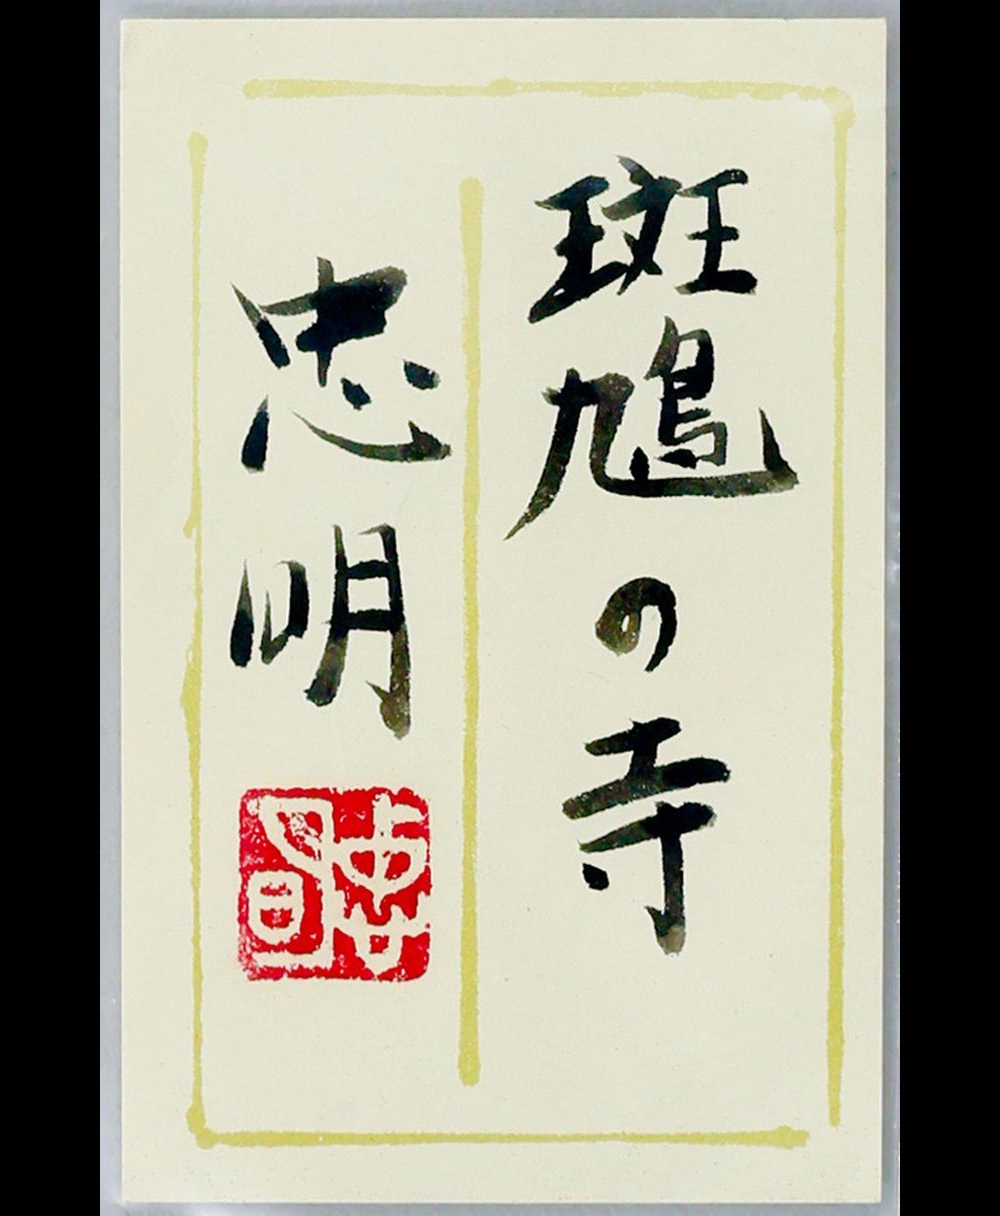 斑鳩の寺
忠明